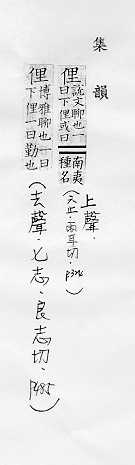 集韻
俚說文聊也一曰下俚或曰南夷種名
上聲.
(六止.兩耳切.p326)
俚博雅聊也一曰下俚一曰勤也
(去聲.七志.良志切.p485)